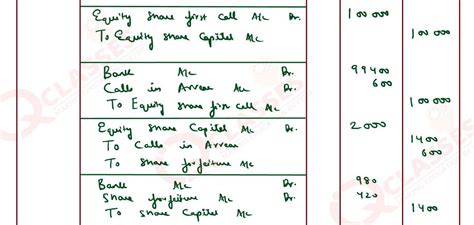 Equity Share first Call A/c Dr. 100 000
To Equity Share Capital A/c 100 000
Bank A/c Dr. 99400
Calls in Arrear Dr. 600
To Equity Share first call A/c 100 000
Equity Share Capital A/c Dr. 2000
To Calls in Arrear 1400
To Share forfeiture A/c 600
Bank A/c Dr. 980
Share forfeiture Dr. 420
To Share Capital A/c 1400
CLASSES
CLASSES